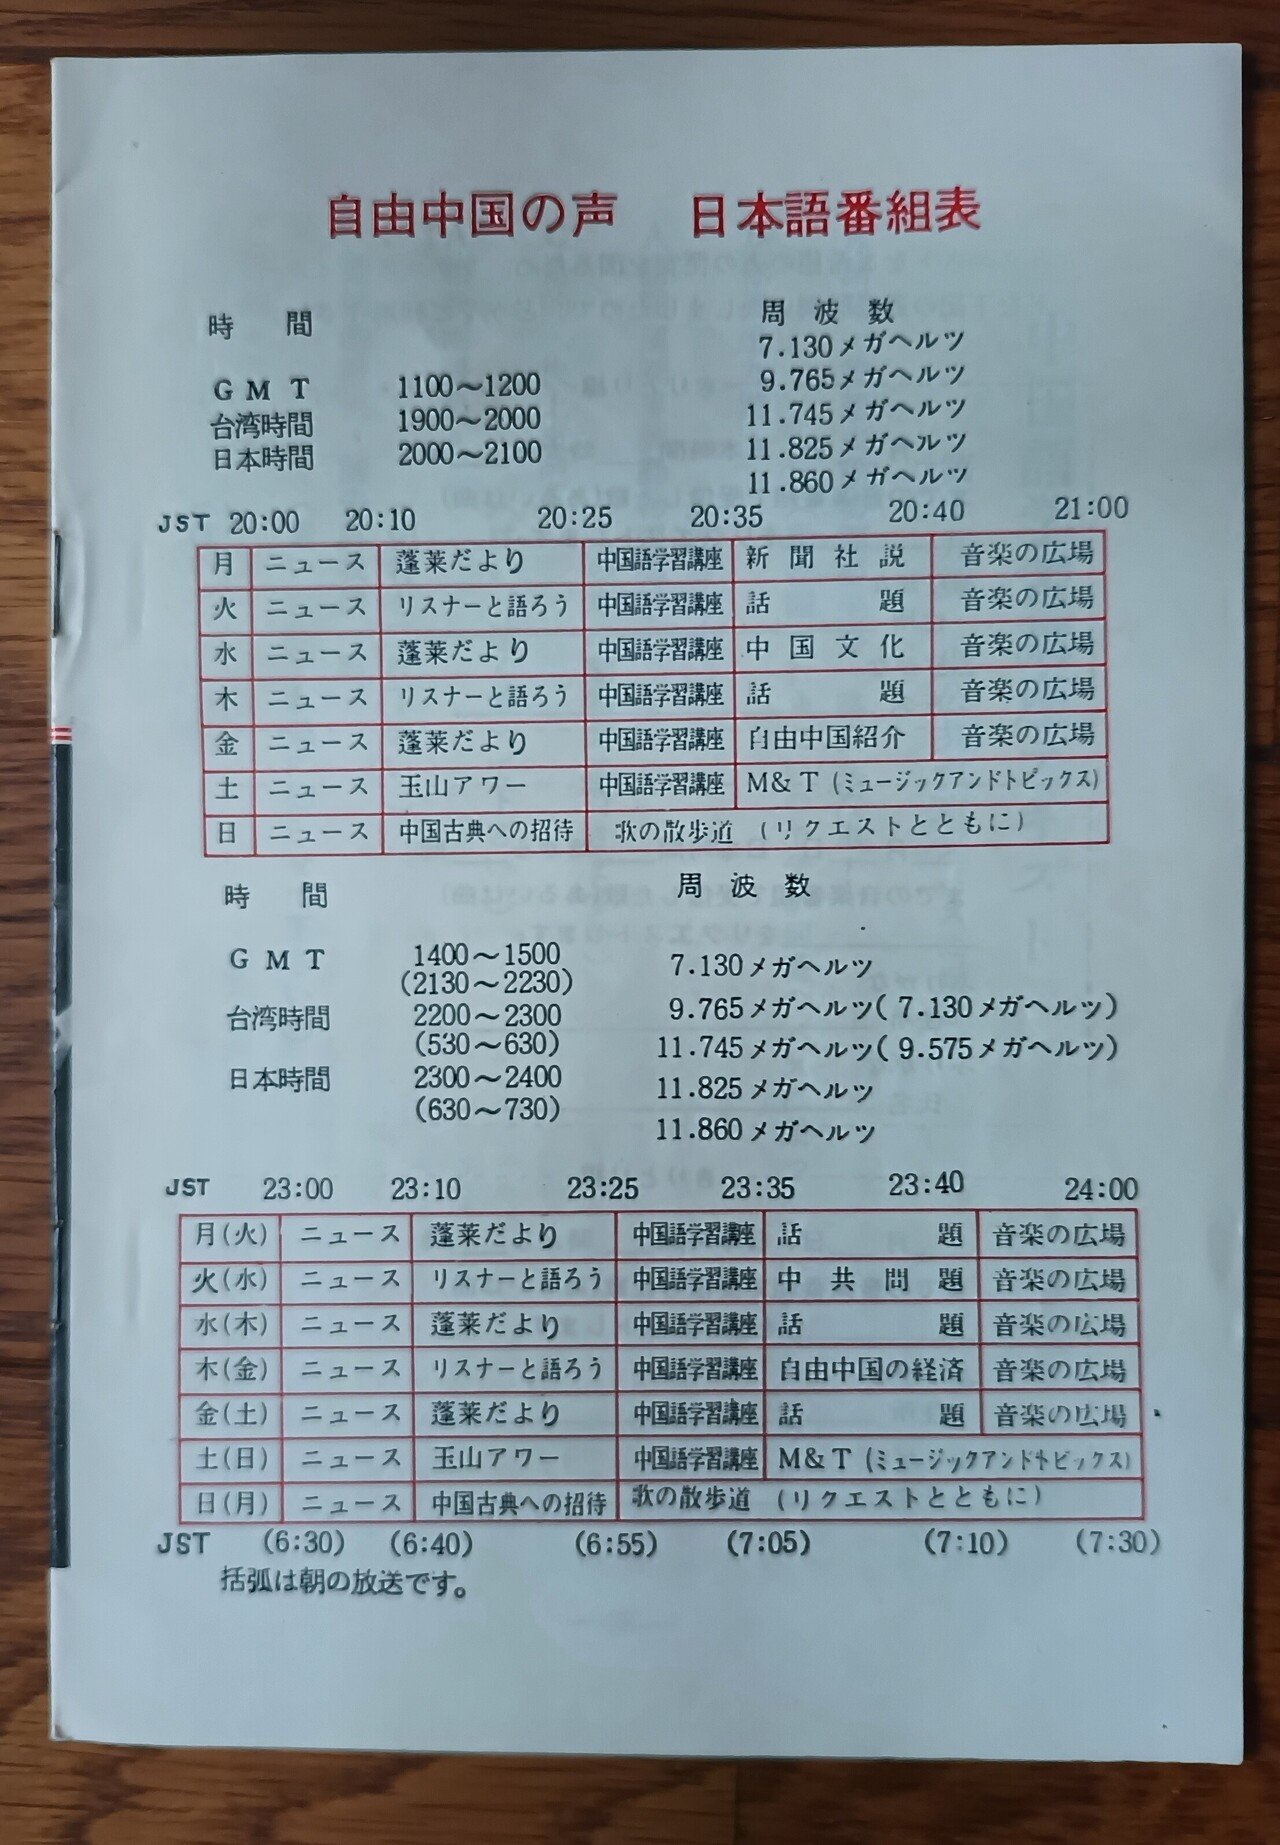 自由中国の声　日本語番組表
時間　周波数
7.130メガヘルツ
GMT 1100〜1200 9.765メガヘルツ
台湾時間 1900〜2000 11.745メガヘルツ
日本時間 2000〜2100 11.825メガヘルツ
11.860メガヘルツ
JST 20:00 20:10 20:25 20:35 20:40 21:00
月 ニュース 蓬莱だより 中国語学習講座 新聞社説 音楽の広場
火 ニュース リスナーと語ろう 中国語学習講座 話題 音楽の広場
水 ニュース 蓬莱だより 中国語学習講座 中国文化 音楽の広場
木 ニュース リスナーと語ろう 中国語学習講座 話題 音楽の広場
金 ニュース 蓬莱だより 中国語学習講座 自由中国紹介 音楽の広場
土 ニュース 玉山アワー 中国語学習講座 M&T (ミュージックアンドトピックス)
日 ニュース 中国古典への招待 歌の散歩道 (リクエストとともに)
時間　周波数
GMT 1400〜1500 7.130メガヘルツ
(2130〜2230)
台湾時間 2200〜2300 9.765メガヘルツ(7.130メガヘルツ)
(530〜630) 11.745メガヘルツ(9.575メガヘルツ)
日本時間 2300〜2400 11.825メガヘルツ
(630〜730) 11.860メガヘルツ
JST 23:00 23:10 23:25 23:35 23:40 24:00
月(火) ニュース 蓬莱だより 中国語学習講座 話題 音楽の広場
火(水) ニュース リスナーと語ろう 中国語学習講座 中共問題 音楽の広場
水(木) ニュース 蓬莱だより 中国語学習講座 話題 音楽の広場
木(金) ニュース リスナーと語ろう 中国語学習講座 自由中国の経済 音楽の広場
金(土) ニュース 蓬莱だより 中国語学習講座 話題 音楽の広場
土(日) ニュース 玉山アワー 中国語学習講座 M&T (ミュージックアンドトピックス)
日(月) ニュース 中国古典への招待 歌の散歩道 (リクエストとともに)
JST (6:30) (6:40) (6:55) (7:05) (7:10) (7:30)
括弧は朝の放送です。